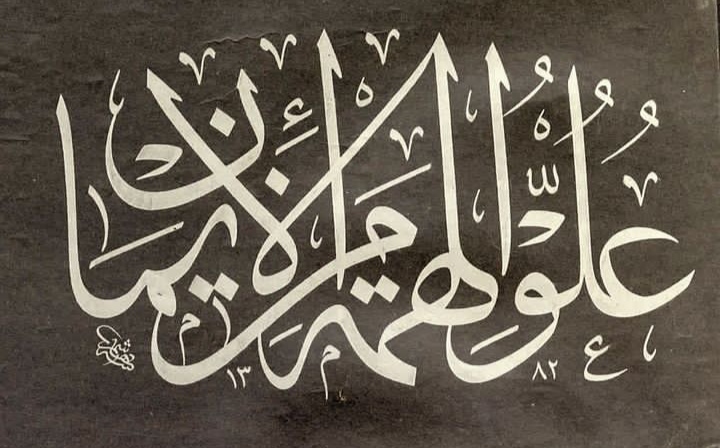 عُلُوُّ الهمة من الإيمان
١٣٨٢